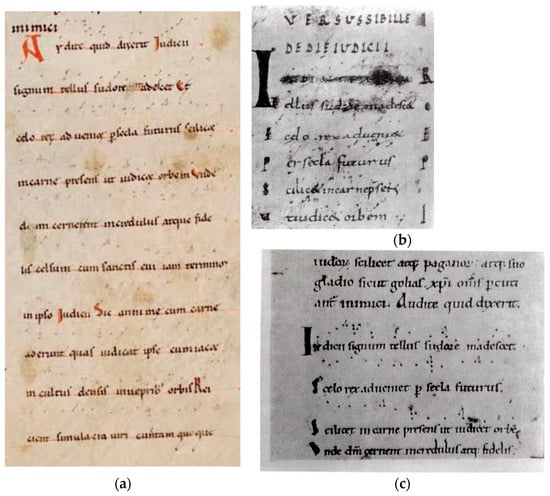 inimici
Audite quid dixerit Iudicii
signum tellus sudore madescet Et
celo rex adueniet p secla futurus scilicet
in carne presens ut iudicet orbem Unde
dm cernent incredulus atque fide
lis celsum cum sanctis eui iam termino
in ipso Iudicii Sic anime cum carne
aderunt quas iudicat ipse cum iacet
incultus densis in uepribus orbis Rei
cient simulacra uiri cunctam que que
(a)
VERSUS SIBILLE
DE DIE IUDICII
I R
tellus sudore madescet
celo rex adueniet
per secla futurus
scilicet in carne psens
ut iudicet orbem
(b)
iudeor scilicet atq; paganor atq; suo
gladio sicut golias xpi oms pcuti
ant inimici. Audite quid dixerit.
Iudicii signum tellus sudore madescet.
E celo rex adueniet p secla futurus.
Scilicet in carne presens ut iudicet orbe
Unde dm cernent incredulus atq; fidelis.
(c)